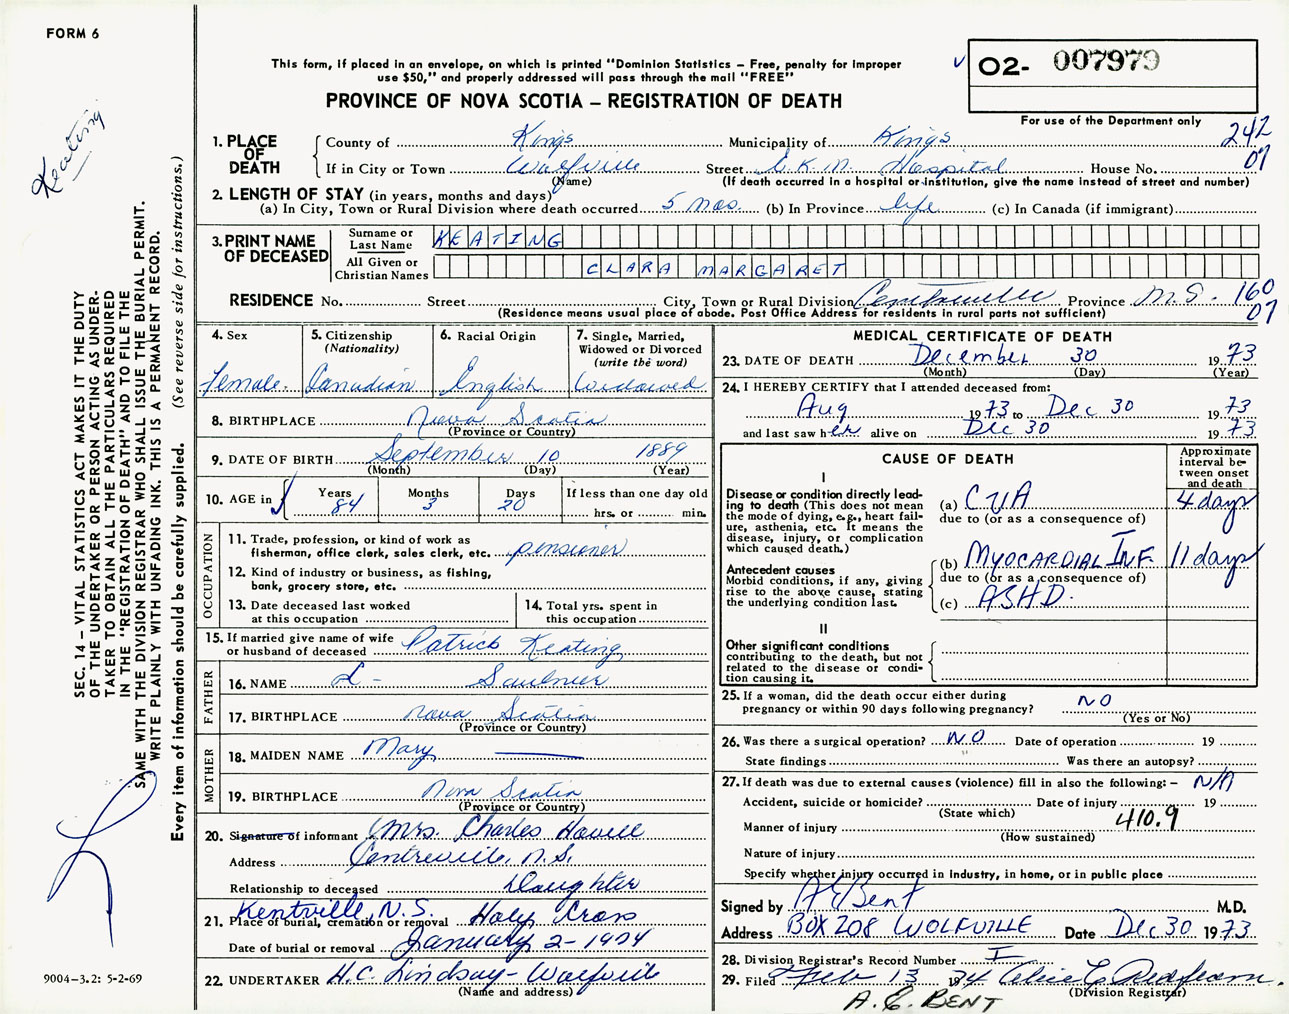 FORM 6
This form, if placed in an envelope, on which is printed "Dominion Statistics – Free, penalty for improper
use $50," and properly addressed will pass through the mail "FREE"
PROVINCE OF NOVA SCOTIA – REGISTRATION OF DEATH
O2- 007979
For use of the Department only
242
07
Keating
SEC. 14 – VITAL STATISTICS ACT MAKES IT THE DUTY
OF THE UNDERTAKER OR PERSON ACTING AS UNDER-
TAKER TO OBTAIN ALL THE PARTICULARS REQUIRED
IN THE "REGISTRATION OF DEATH" AND TO FILE THE
SAME WITH THE DIVISION REGISTRAR WHO SHALL ISSUE THE BURIAL PERMIT.
WRITE PLAINLY WITH UNFADING INK. THIS IS A PERMANENT RECORD.
Every item of information should be carefully supplied. (See reverse side for instructions.)
1. PLACE OF DEATH
County of Kings Municipality of Kings
If in City or Town Wolfville Street E.K.M. Hospital House No.
(Name) (If death occurred in a hospital or institution, give the name instead of street and number)
2. LENGTH OF STAY (in years, months and days)
(a) In City, Town or Rural Division where death occurred 5 mos. (b) In Province life (c) In Canada (if immigrant)
3. PRINT NAME OF DECEASED
Surname or Last Name KEATING
All Given or Christian Names CLARA MARGARET
RESIDENCE No. Street City, Town or Rural Division Centreville Province N.S. 160
07
(Residence means usual place of abode. Post Office Address for residents in rural parts not sufficient)
4. Sex
Female.
5. Citizenship (Nationality)
Canadian
6. Racial Origin
English
7. Single, Married, Widowed or Divorced (write the word)
Widowed
8. BIRTHPLACE Nova Scotia
(Province or Country)
9. DATE OF BIRTH September 10 1889
(Month) (Day) (Year)
10. AGE in Years Months Days If less than one day old
84 3 20 hrs. or min.
OCCUPATION
11. Trade, profession, or kind of work as
fisherman, office clerk, sales clerk, etc. pensioner
12. Kind of industry or business, as fishing,
bank, grocery store, etc.
13. Date deceased last worked
at this occupation
14. Total yrs. spent in
this occupation
15. If married give name of wife
or husband of deceased Patrick Keating
FATHER
16. NAME L - Saulnier
17. BIRTHPLACE Nova Scotia
(Province or Country)
MOTHER
18. MAIDEN NAME Mary
19. BIRTHPLACE Nova Scotia
(Province or Country)
20. Signature of informant (Mrs. Charles
Address Centreville, N.S.
Relationship to deceased Daughter
21. Kentville, N.S.
Place of burial, cremation or removal Holy Cross
Date of burial or removal January 2-1974
22. UNDERTAKER H.C. Lindsay - Wolfville
(Name and address)
9004–3.2: 5-2-69
MEDICAL CERTIFICATE OF DEATH
23. DATE OF DEATH December 30 1973
(Month) (Day) (Year)
24. I HEREBY CERTIFY that I attended deceased from:
Aug 1973 to Dec 30 1973
and last saw her alive on Dec 30 1973
CAUSE OF DEATH
Approximate interval be- tween onset and death
I
Disease or condition directly lead-
ing to death (This does not mean
the mode of dying, e.g., heart fail-
ure, asthenia, etc. It means the
disease, injury, or complication
which caused death.)
(a) CVA 4 days
due to (or as a consequence of)
(b) MYOCARDIAL INF 11 days
due to (or as a consequence of)
(c) ASHD.
Antecedent causes
Morbid conditions, if any, giving
rise to the above cause, stating
the underlying condition last.
II
Other significant conditions
contributing to the death, but not
related to the disease or condi-
tion causing it.
25. If a woman, did the death occur either during
pregnancy or within 90 days following pregnancy? NO
(Yes or No)
26. Was there a surgical operation? NO Date of operation 19
State findings " Was there an autopsy?
27. If death was due to external causes (violence) fill in also the following: – N/A
Accident, suicide or homicide? Date of injury 19
(State which)
Manner of injury 410.9
(How sustained)
Nature of injury
Specify whether injury occurred in industry, in home, or in public place
Signed by A E Bent M.D.
Address BOX 208 WOLFVILLE Date Dec 30 1973
28. Division Registrar's Record Number I
29. Filed Feb 13 1974
(Division Registrar)
A.E. BENT